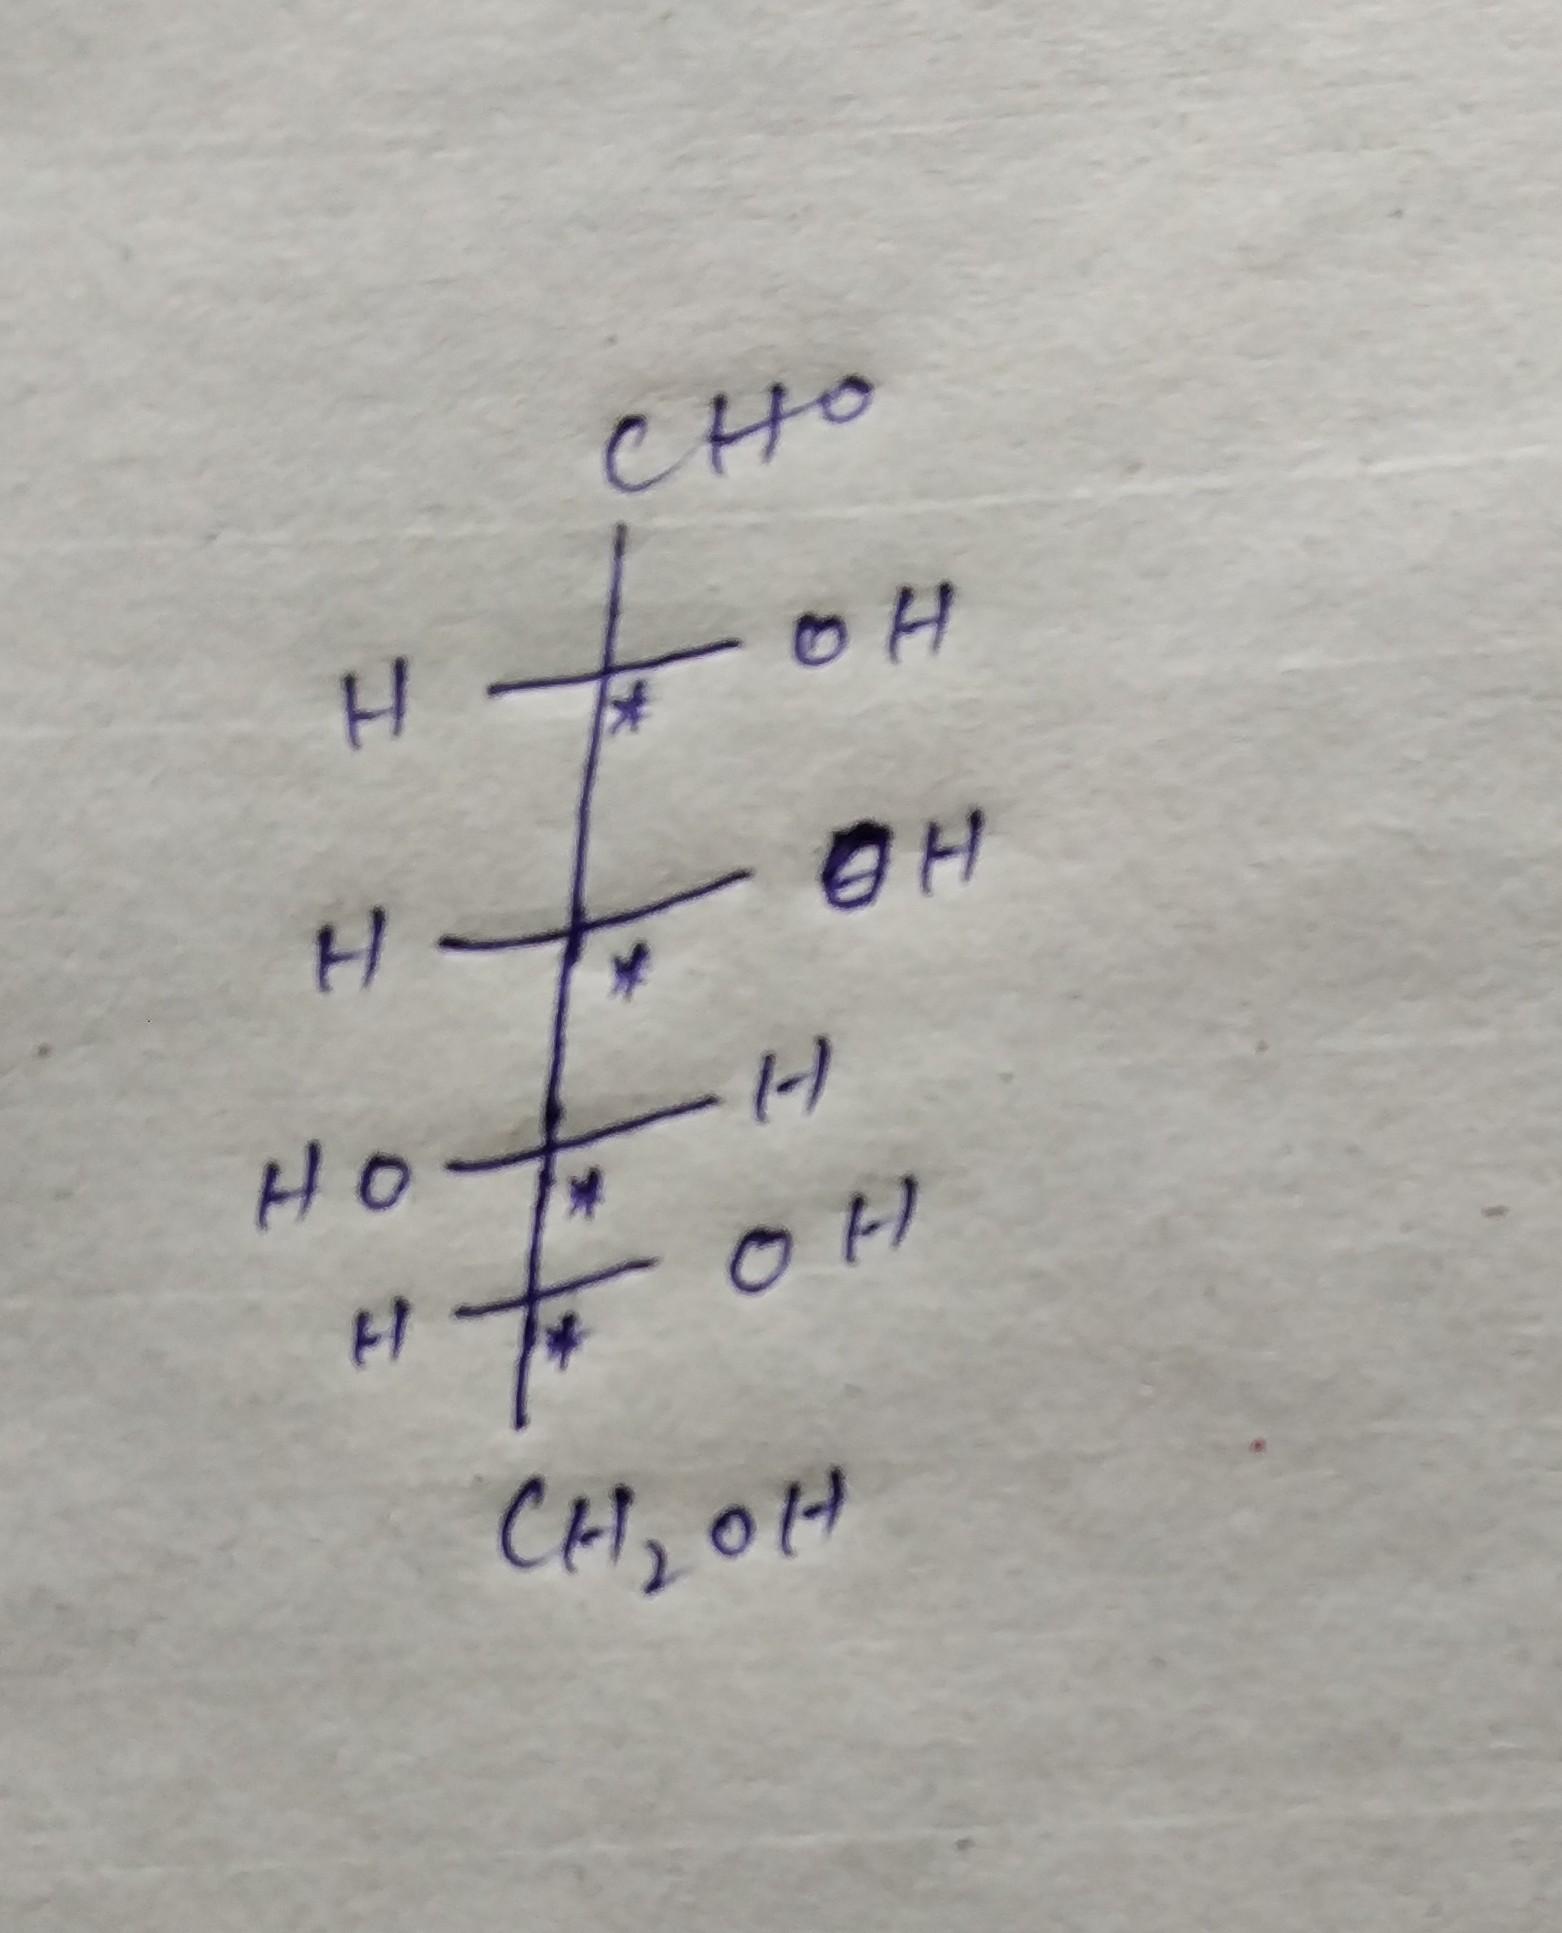 CHO
H OH
*
H OH
*
HO H
*
H OH
*
CH₂OH